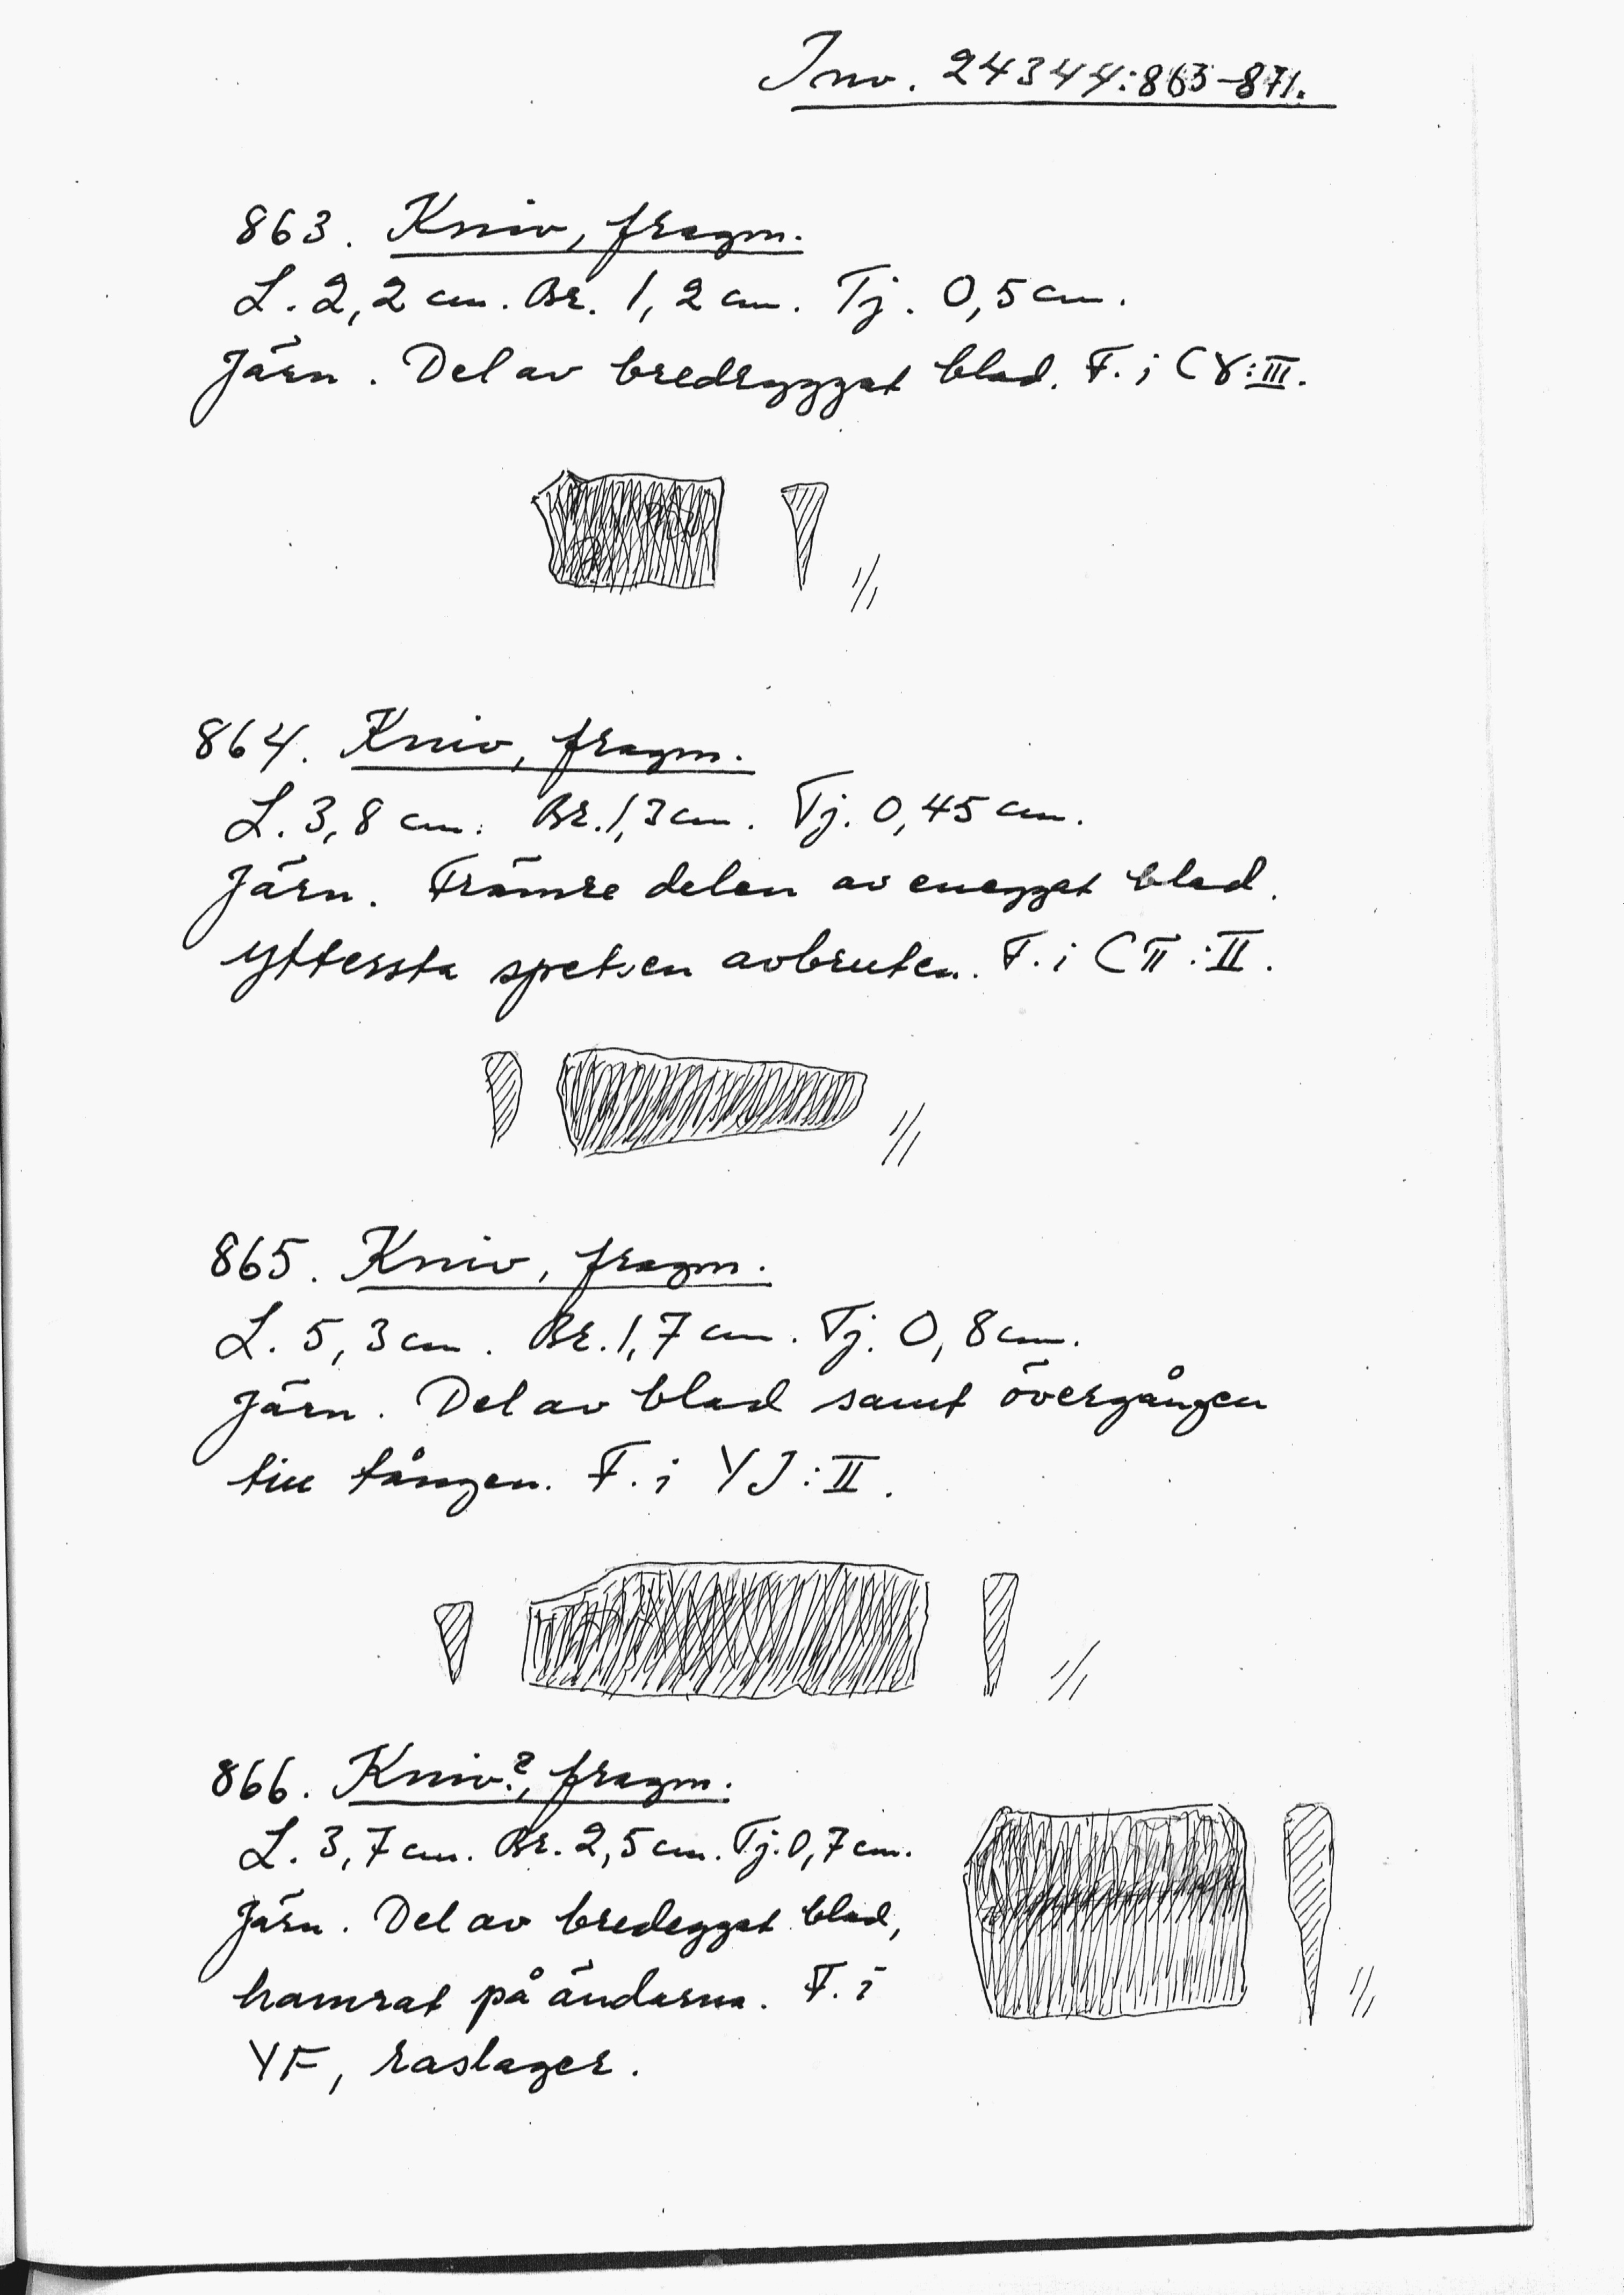 Inv. 24344:863-871.
863. Kniv, fragm.
L. 2,2 cm. Br. 1,2 cm. Tj. 0,5 cm.
Järn. Del av bredryggat blad. F. i CX:III.
1/1
864. Kniv, fragm.
L. 3,8 cm. Br. 1,3 cm. Tj. 0,45 cm.
Järn. Främre delen av eneggat blad.
Yttersta spetsen avbruten. F. i CΠ:II.
1/1
865. Kniv, fragm.
L. 5,3 cm. Br. 1,7 cm. Tj. 0,8 cm.
Järn. Del av blad samt övergången
till tången. F. i YJ:II.
1/1
866. Kniv?, fragm.
L. 3,7 cm. Br. 2,5 cm. Tj. 0,7 cm.
Järn. Del av bredeggat blad,
hamrat på ändarna. F. i
YF, raslager.
1/1